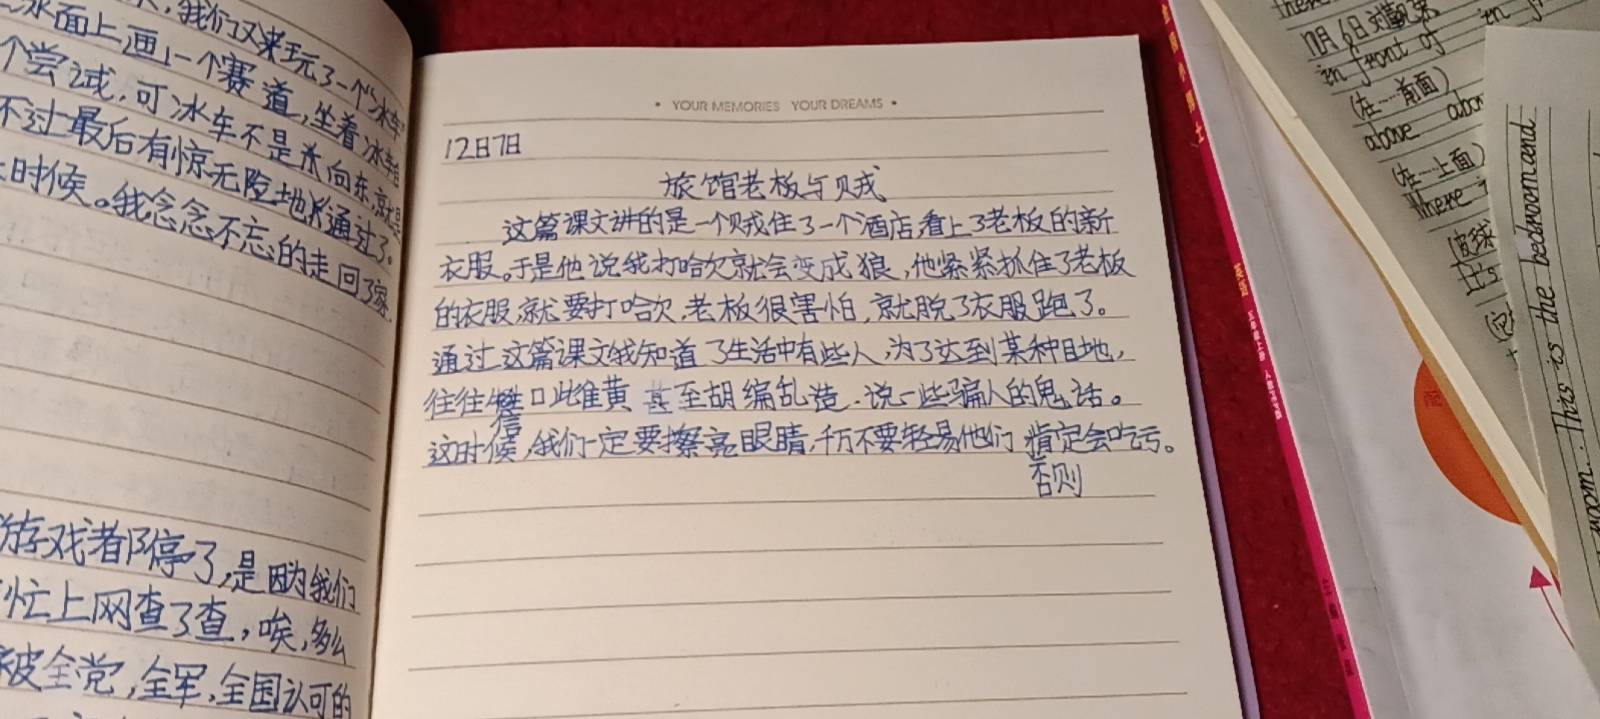 我们又来玩了一个“冰车”
冰面上画一个赛道,坐着冰车
个尝试,可冰车不是
不过最后有惊无险地通过了。
时候。我念念不忘的走回了家.
游戏者都停了,是因为我们
忙上网查了查,唉,多么
被全党,全军,全国认可的
• YOUR MEMORIES YOUR DREAMS •
12日7日
旅馆老板与贼
这篇课文讲的是一个贼住了一个酒店,看上了老板的新
衣服。于是他说我打哈欠就会变成狼,他紧紧抓住了老板
的衣服,就要打哈欠,老板很害怕,就脱了衣服跑了。
通过这篇课文我知道了生活中有些人,为了达到某种目地,
往往信口雌黄 甚至胡编乱造.说一些骗人的鬼话。
这时候,我们一定要擦亮眼睛,千万不要轻易他们 否则 肯定会吃亏。
in front of
(在……前面)
above
(在……上面)
Where
(皮球
It's
This is the bedroom and
room.